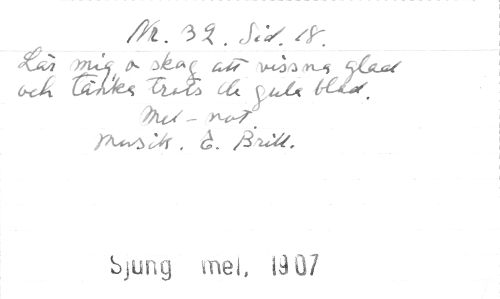 Nr. 32. Sid. 18.
Lär mig o skog att vissna glad
och tänka trots de gula blad.
Mel-not
Musik. E. Brill.
Sjung mel, 1907